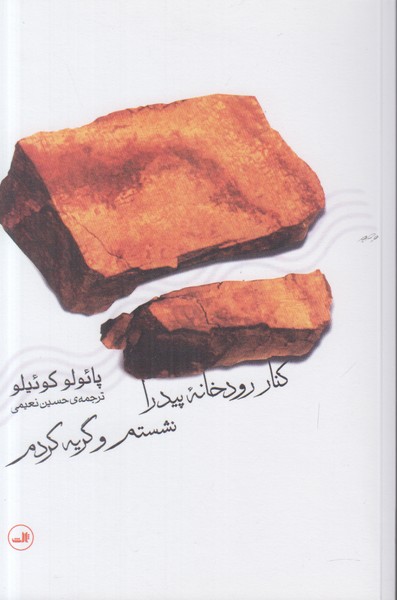 پائولو کوئیلو
ترجمه‌ی حسین نعیمی
کنار رودخانهٔ پیدرا
نشستم و گریه کردم
ثالث